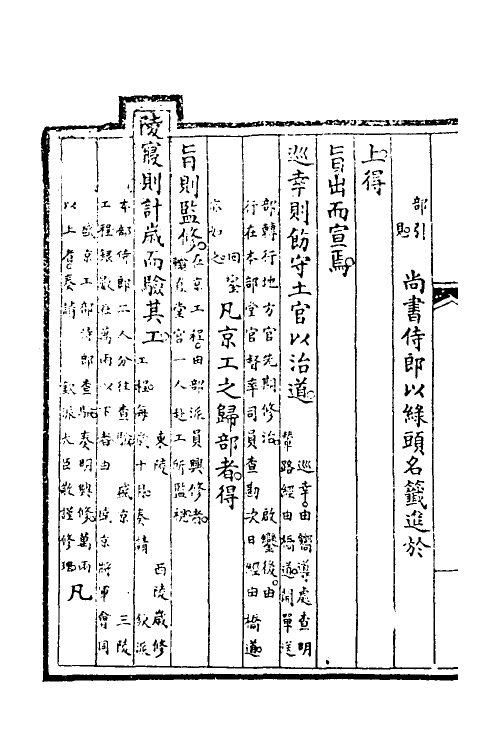 部引
見 尚書侍郎以綠頭名籤進於
上得
旨出而宣焉
巡幸則飭守土官以治道 巡幸由嚮導處查明
輦路經由橋道開單送
部轉行地方官先期修治 啟鑾後由
行在本部堂官督率司員查勘次日經由橋道
亦如之
回鑾 凡京工之歸部者得
旨則監修 在京工程由部派員興修者
堂官一人赴工所監視
陵寢則計歲而驗其工 東陵 西陵歲修
工程每歲十月奏請 欽派
本部侍郎二人分往查驗 盛京 三陵
工程銀數在萬兩以下者由 盛京將軍會同
盛京工部侍郎查驗奏明興修萬兩
以上者奏請 欽派大臣敬謹修理 凡